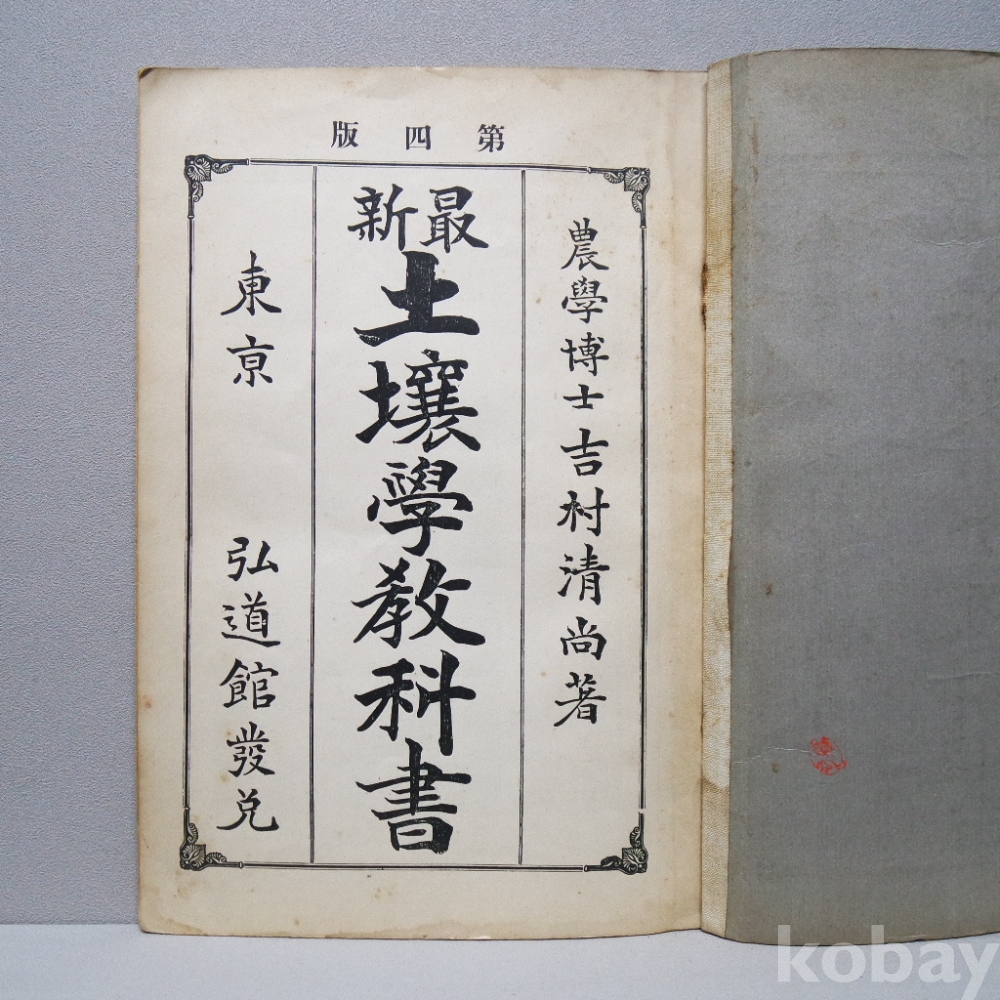 第四版
農學博士吉村清尚著
最新
土壤學教科書
東亰 弘道館發兌
kobay